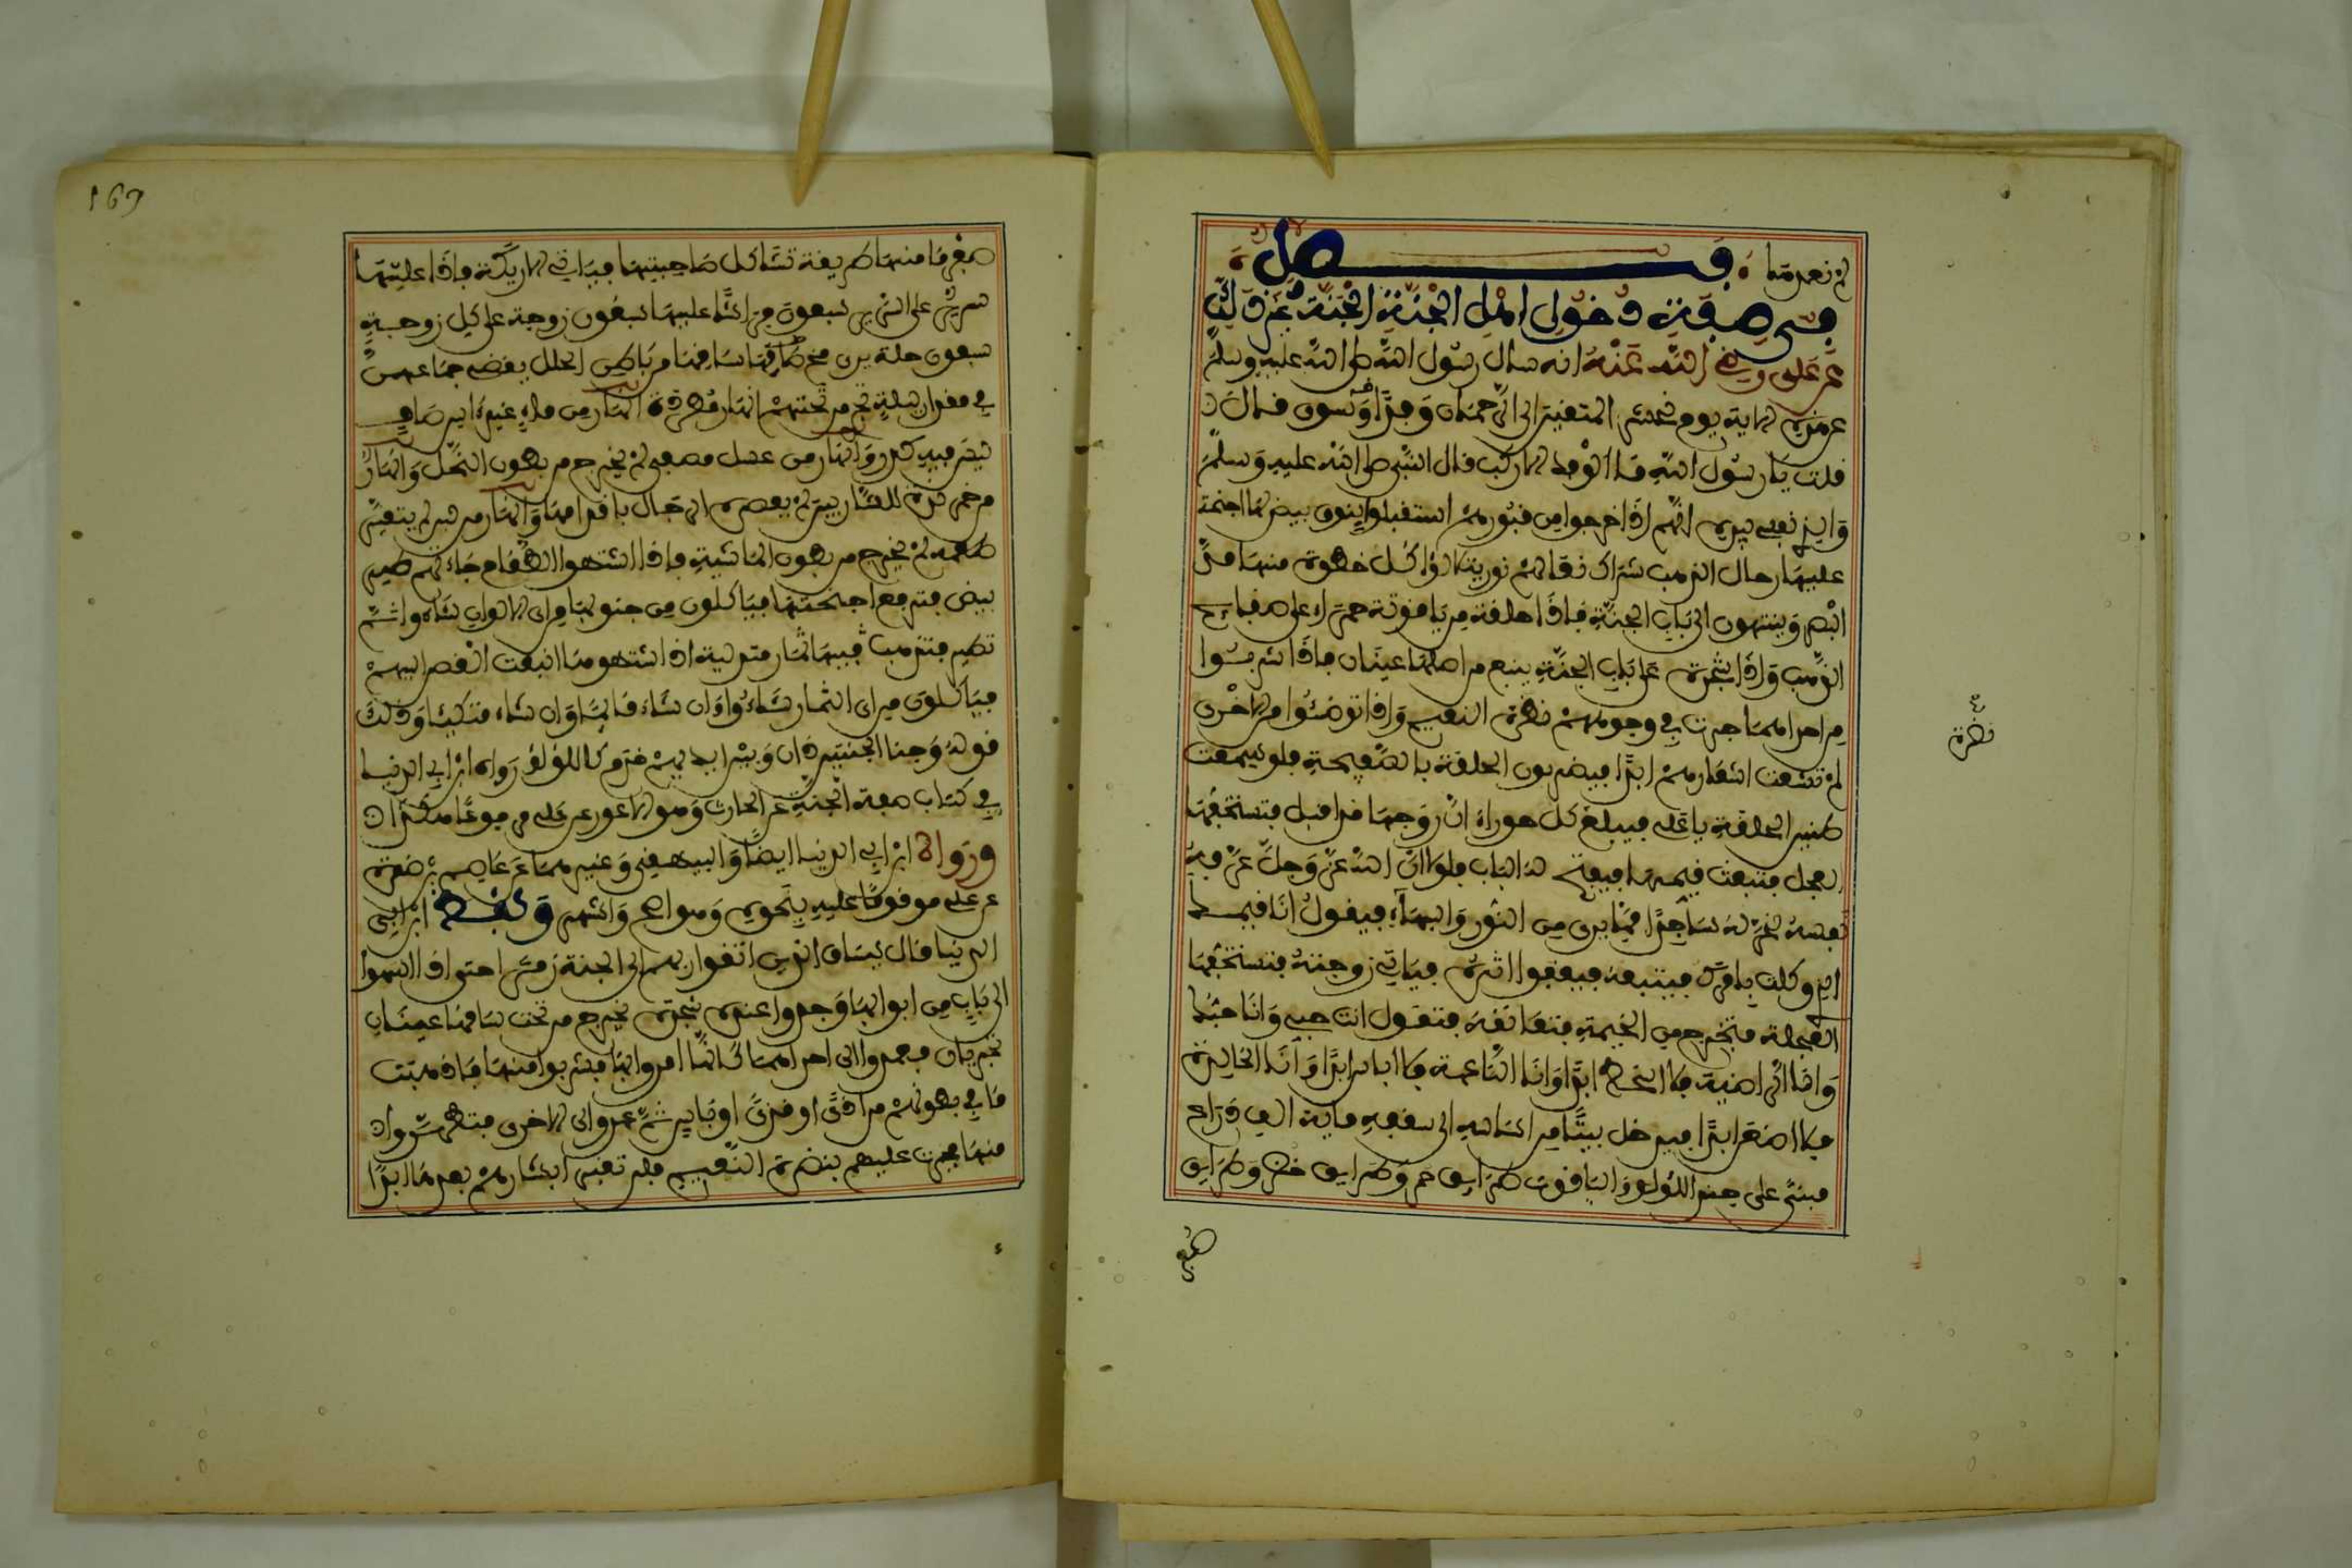 لم نعد منها فصل
في صفة دخول اهل الجنة الجنة غير ذلك
عن علي رضي الله عنه انه سال رسول الله صلى الله عليه وسلم
عن هذه الاية يوم نحشر المتقين الى الرحمان وفدا وسوق قال
قلت يا رسول الله ما الوفد الا ركب قال النبي صلى الله عليه وسلم
والذي نفسي بيده انهم اذا خرجوا من قبورهم استقبلوا بنوق بيض لها اجنحة
عليها رحال الذهب شراك نعالهم نور يتلالؤا كل خطوة منها مد
البصر وينتهون الى باب الجنة فاذا حلقة من ياقوتة حمراء على صفائح
الذهب واذا شجرة على باب الجنة ينبع من اصلها عينان فاذا شربوا
من احداهما جرت في وجوههم نضرة النعيم واذا توضئوا من الاخرى
لم تشعث اشعارهم ابدا فيضربون الحلقة بالصفيحة فلو سمعت
طنين الحلقة يا علي فيبلغ كل حوراء ان زوجها قد اقبل فتستخفها
العجلة فتبعث قيمها فيفتح له الباب فلولا ان الله عز وجل عرفه
نفسه لخر له ساجدا مما يرى من النور والبهاء فيقول انا قيمك
الذي وكلت بامرك فيتبعه فيقفوا اثره فياتي زوجته فتستخفها
العجلة فتخرج من الخيمة فتعانقه فتقول انت حبي وانا حبك
وانا الراضية فلا اسخط ابدا وانا الناعمة فلا ابأس ابدا وانا الخالدة
فلا اضعن ابدا فيدخل بيتا من اساسه الى سقفه مائة الف ذراع
مبنى على جندل اللؤلؤ والياقوت طرايق حمر وطرايق خضر وطرايق
نضرة
صفر
169
صفر ما منها طريقة تشاكل صاحبتها فياتي الاريكة فاذا عليها
سرير على السرير سبعون فراشا عليها سبعون زوجة على كل زوجة
سبعون حلة يرى مخ ساقها من باطن الحلل يقضي جماعهن
في مقدار ليلة تجري من تحتهم انهار مطردة انهار من ماء غير ءاسن صاف
ليس فيه كدر وانهار من عسل مصفى لم يخرج من بطون النحل وانهار
من خمر لذة للشاربين لم يعصره الرجال باقدامها وانهار من لبن لم يتغير
طعمه لم يخرج من بطون الماشية فاذا اشتهوا الطعام جاءتهم طير
بيض فترفع اجنحتها فياكلون من جنوبها من اي الالوان شاءوا ثم
تطير فتذهب فيها ثمار متدلية اذا اشتهوها انبعث الغصن اليهم
فياكلون من اي الثمار شاءوا وان شاء قائما وان شاء متكئا وذلك
قوله وجنا الجنتين دان وبين ايديهم خدم كاللؤلؤ رواه ابن ابي الدنيا
في كتاب صفة الجنة عن الحارث وهو الاعور عن علي مرفوعا هكذا
ورواه ابن ابي الدنيا ايضا والبيهقي وغيرهما عن عاصم بن ضمرة
عن علي موقوفا عليه بنحوه وهو اصح واشهر ولفظ ابن ابي
الدنيا قال يساق الذين اتقوا ربهم الى الجنة زمرا حتى اذا انتهوا
الى باب من ابوابها وجدوا عنده شجرة يخرج من تحت ساقها عينان
تجريان فعمدوا الى احداهما كانما امروا بها فشربوا منها فاذهبت
ما في بطونهم من اذى او قذى او باس ثم عمدوا الى الاخرى فتطهروا
منها فجرت عليهم بنضرة النعيم فلن تغير ابشارهم بعدها ابدا